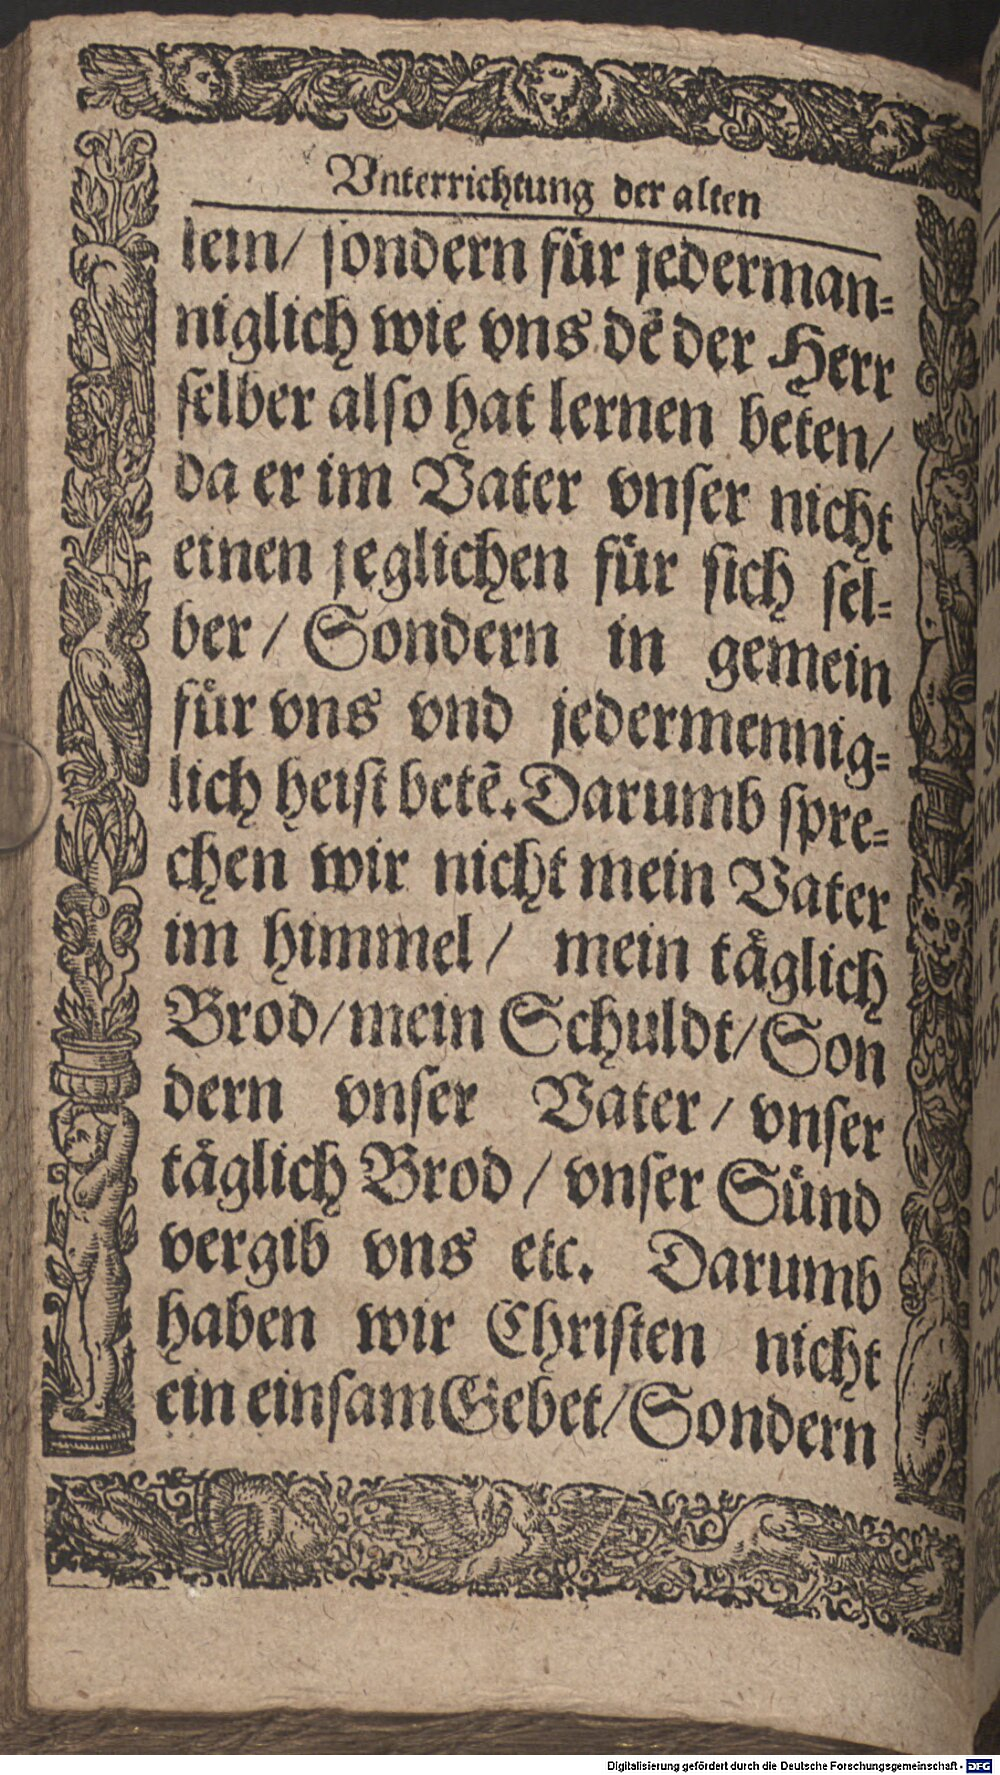 Vnterrichtung der alten
lein/ sondern für jederman-
niglich wie vns dẽ der Herr
selber also hat lernen beten/
da er im Vater vnser nicht
einen jeglichen für sich sel-
ber/ Sondern in gemein
für vns vnd jedermennig-
lich heist betẽ. Darumb spre-
chen wir nicht mein Vater
im himmel/ mein täglich
Brod/ mein Schuldt/ Son
dern vnser Vater/ vnser
täglich Brod/ vnser Sünd
vergib vns etc. Darumb
haben wir Christen nicht
ein einsam Gebet/ Sondern
Digitalisierung gefördert durch die Deutsche Forschungsgemeinschaft - DFG